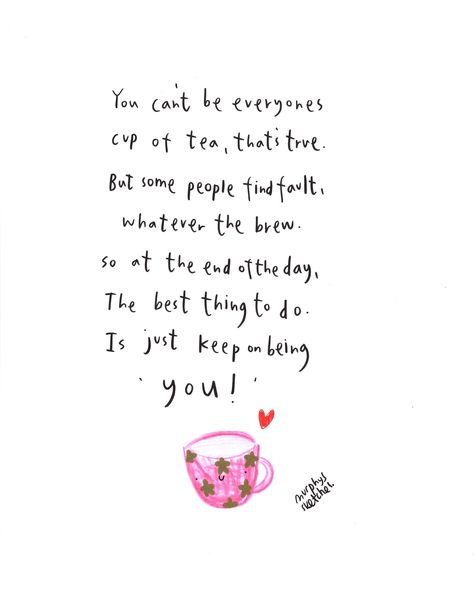 You can't be everyones
cup of tea, that's true.
But some people find fault,
whatever the brew.
so at the end of the day,
The best thing to do.
Is just keep on being
'you!'
murphys
sketches.